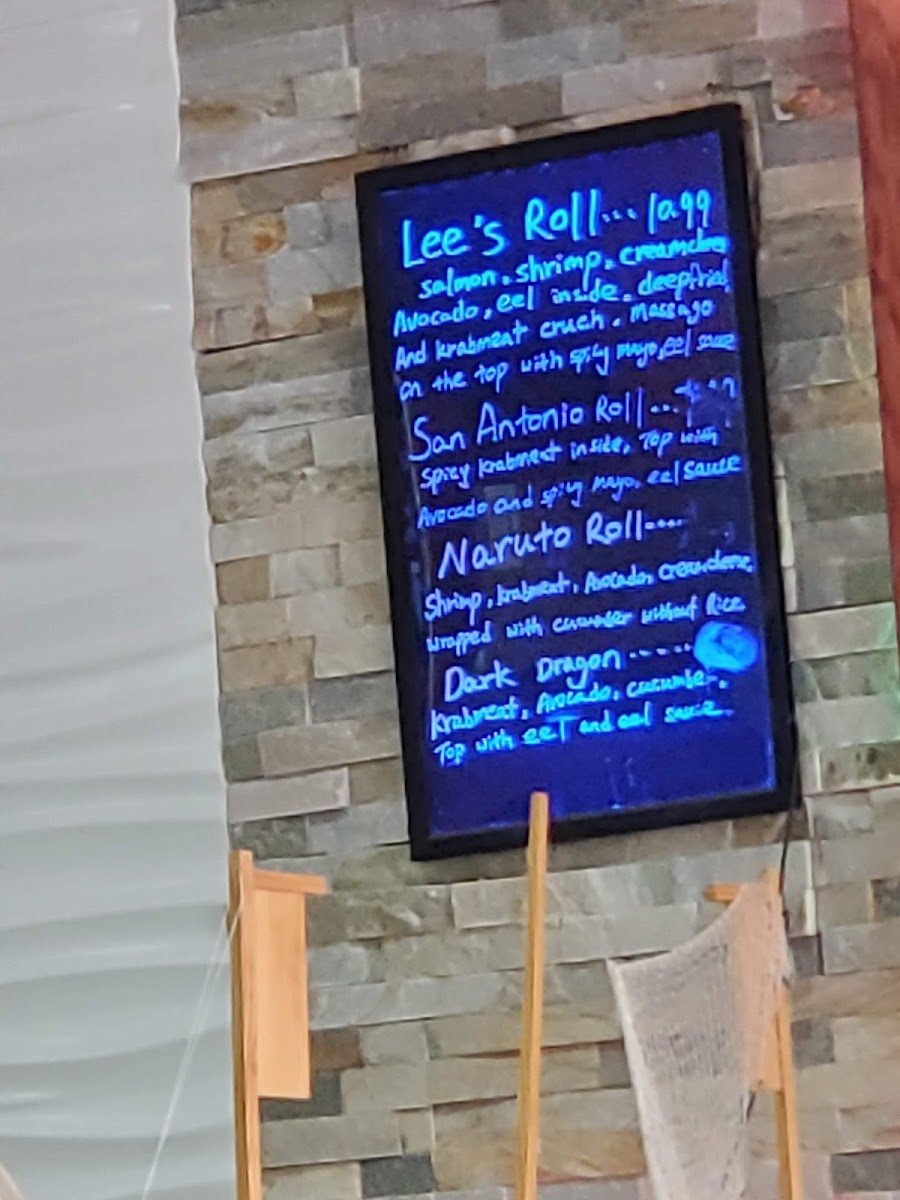 Lee's Roll...
salmon, shrimp, creamchee
Avocado, eel inside, deepfried
And krabmeat cruch, massago
on the top with spicy mayo, eel sauce
San Antonio Roll...
Spicy krabmeat inside, Top with
Avocado and spicy mayo, eel sauce
Naruto Roll....
Shrimp, krabmeat, Avocado, creamcheese,
wrapped with cucumber without Rice
Dark Dragon.....
krabmeat, Avocado, cucumber,
Top with eel and eel sauce.